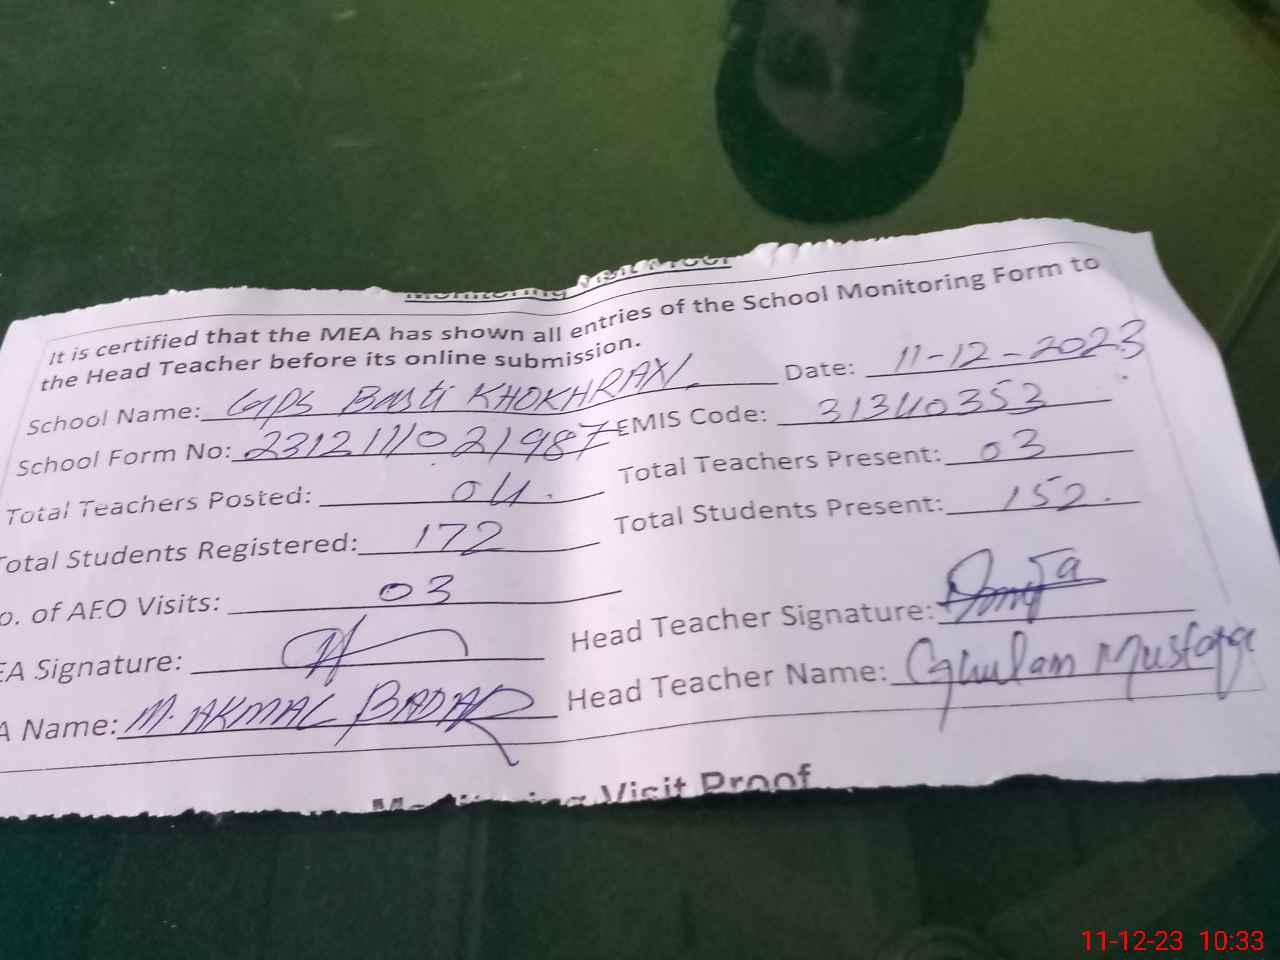 Monitoring Visit Proof
It is certified that the MEA has shown all entries of the School Monitoring Form to
the Head Teacher before its online submission.
School Name: GPS Basti KHOKHRAN. Date: 11-12-2023
School Form No: 2312111021987 EMIS Code: 31340353
Total Teachers Posted: 04. Total Teachers Present: 03
Total Students Registered: 172 Total Students Present: 152.
o. of AEO Visits: 03
EA Signature: Head Teacher Signature:
A Name: M. AKMAL BADAR Head Teacher Name: Ghulam Mustafa
Monitoring Visit Proof
11-12-23 10:33